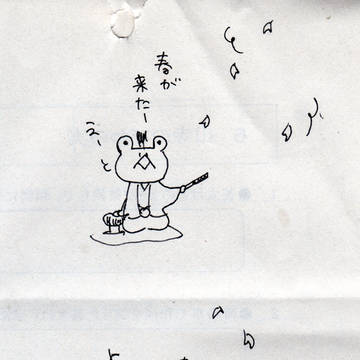 春が
来たー
えーと